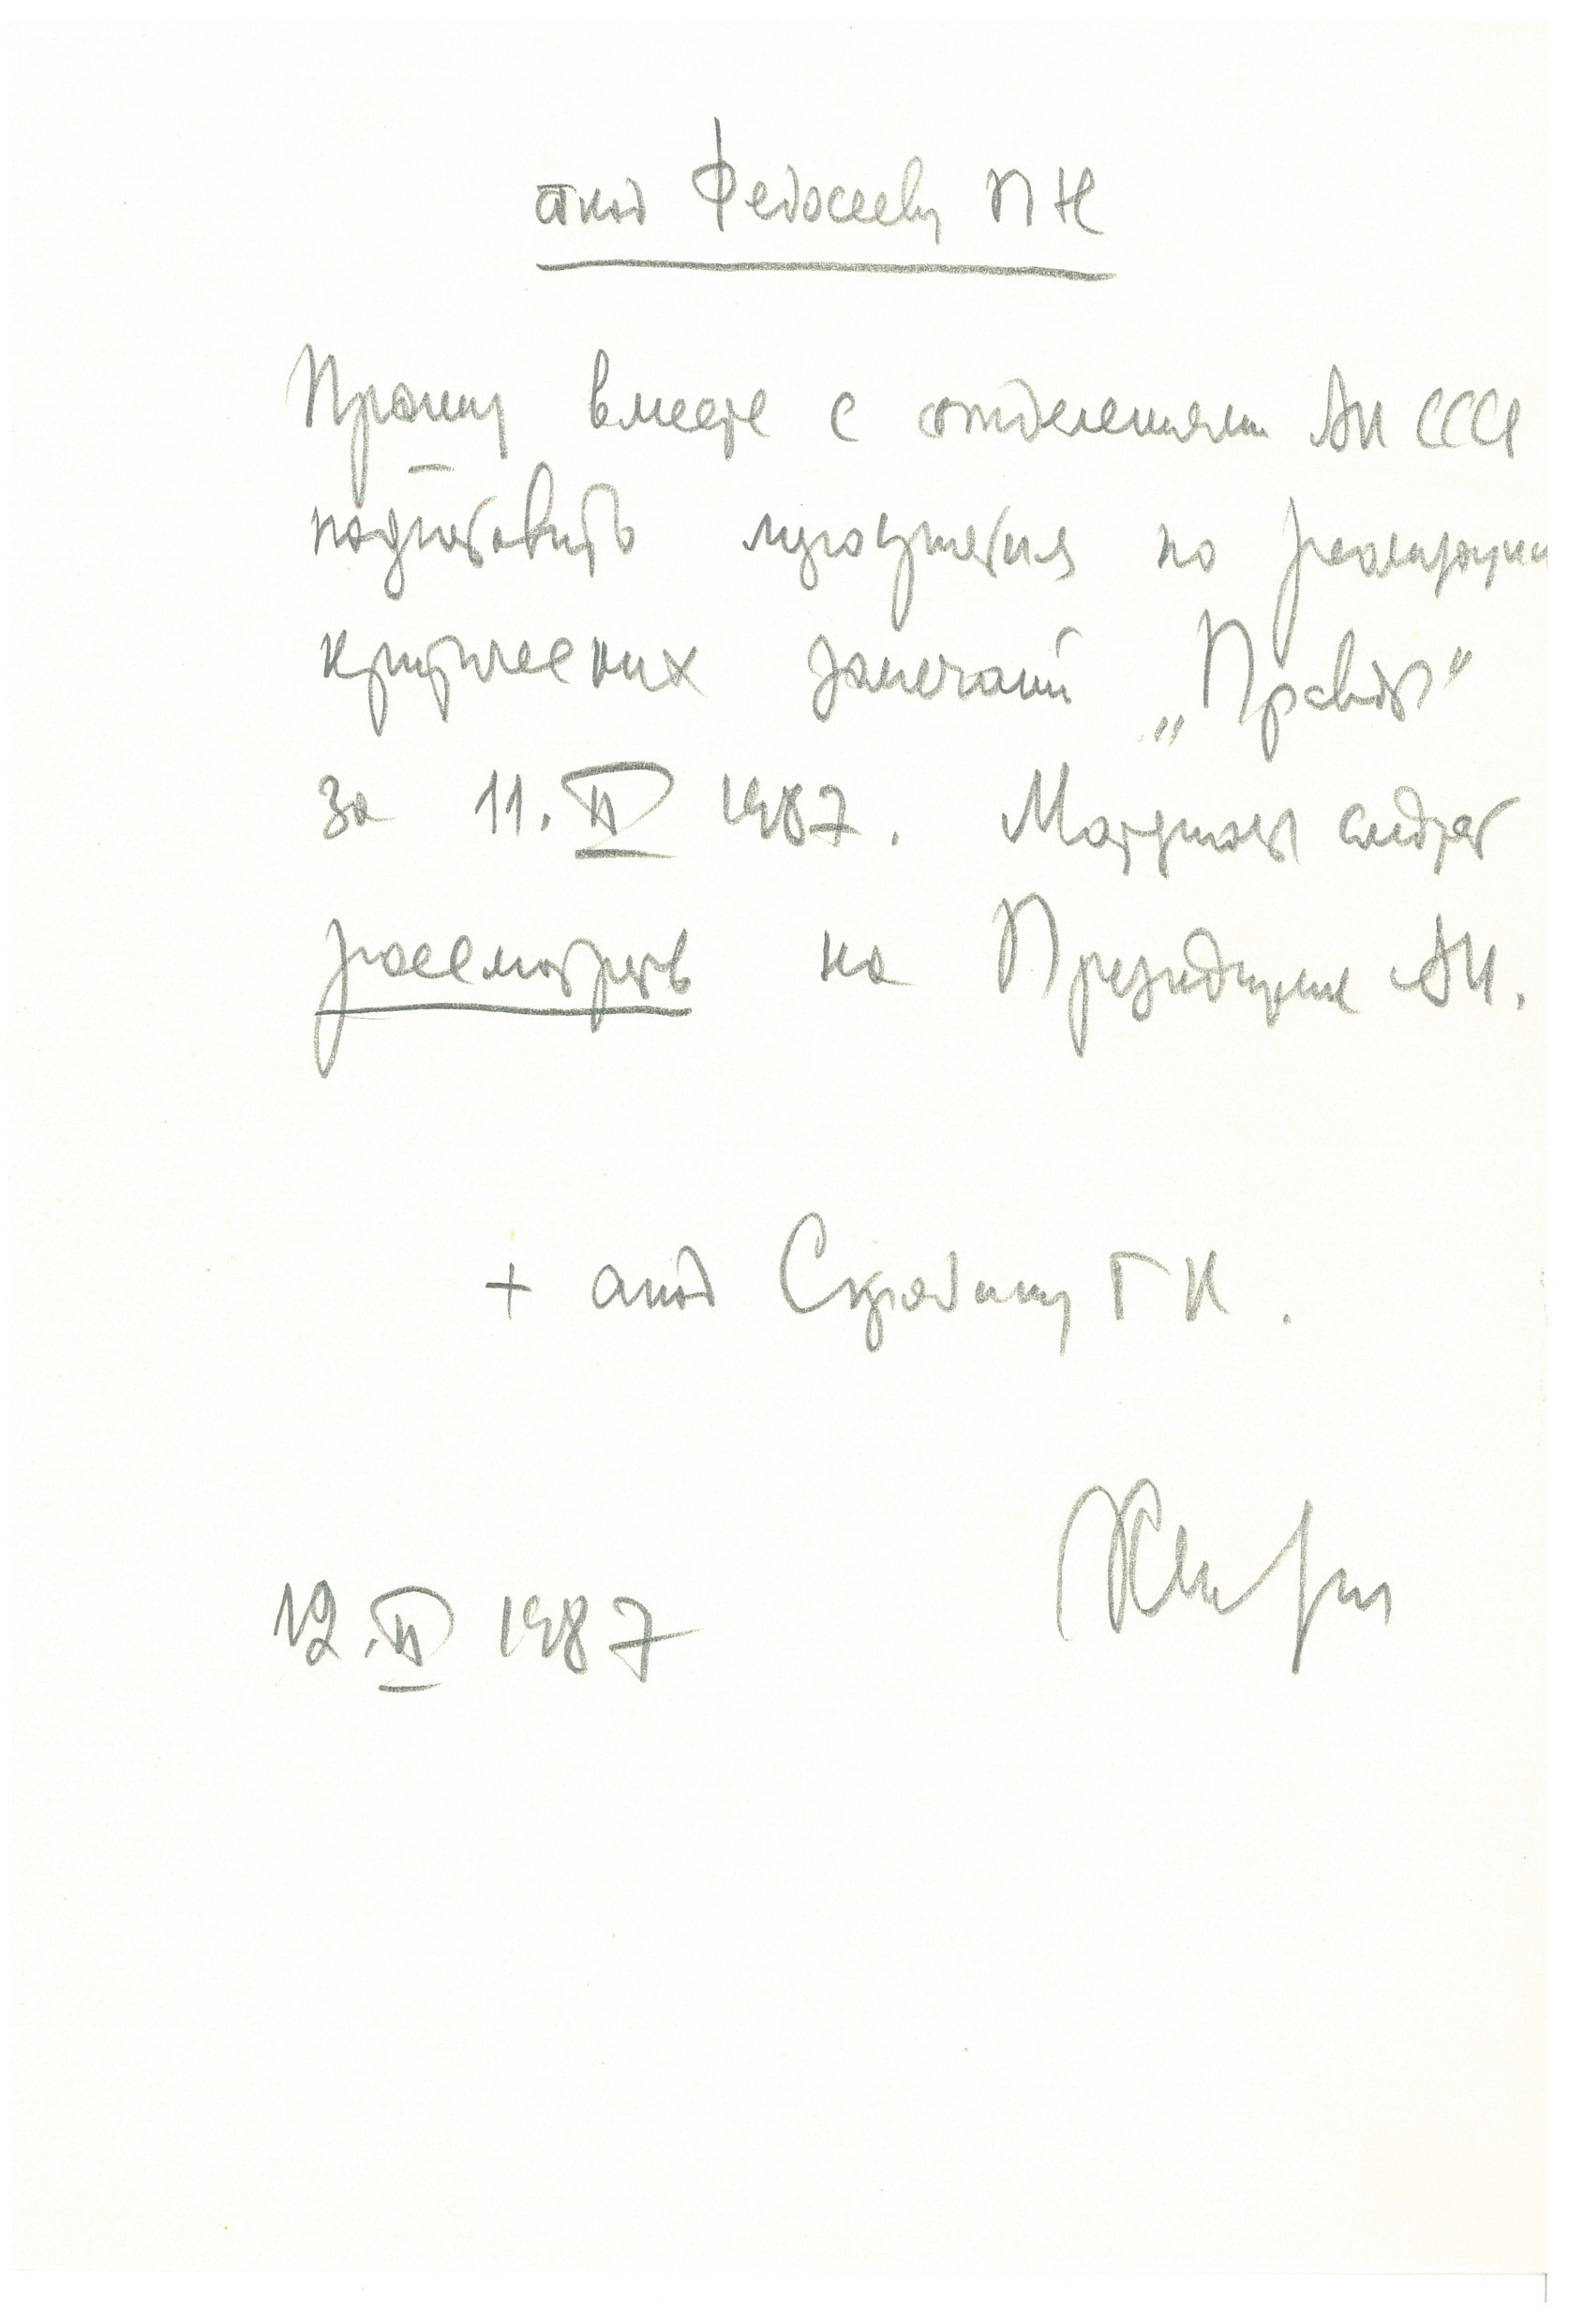 акад Федосееву П Н
Прошу вместе с отделениями АН СССР
подготовить предложения по реализации
критических замечаний „Правды"
за 11.II 1987. Материалы следует
рассмотреть на Президиуме АН.
+ акад Скрябину Г К.
12.II 1987